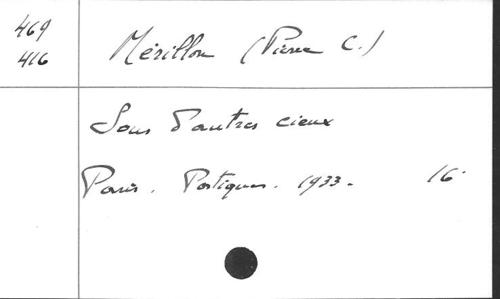 469
416
Mérillon (Pierre C.)
Sous d'autres cieux
Paris. Portiques. 1933. 16°